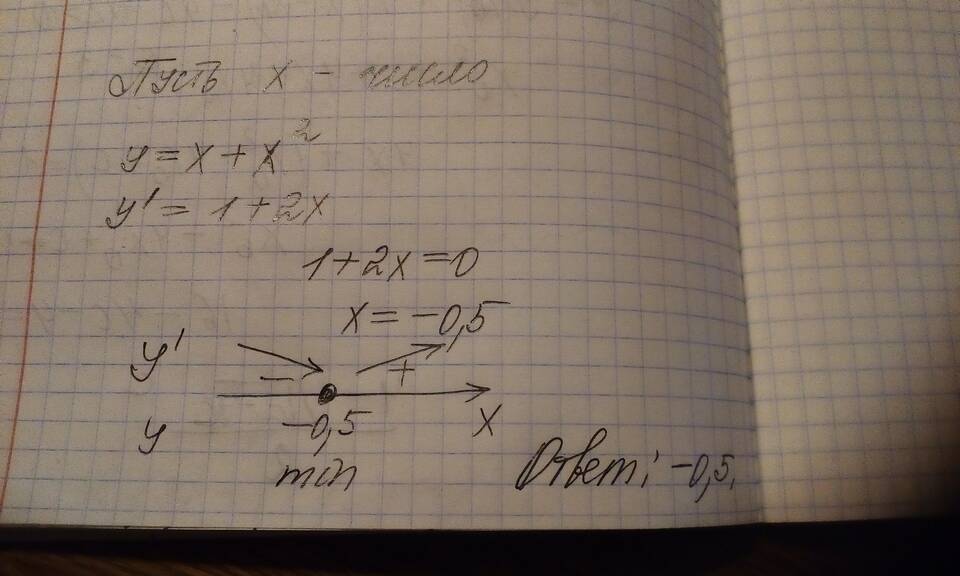 Пусть x - число
y = x + x²
y' = 1 + 2x
1 + 2x = 0
x = -0,5
y' - +
y -0,5 x
min
Ответ: -0,5.